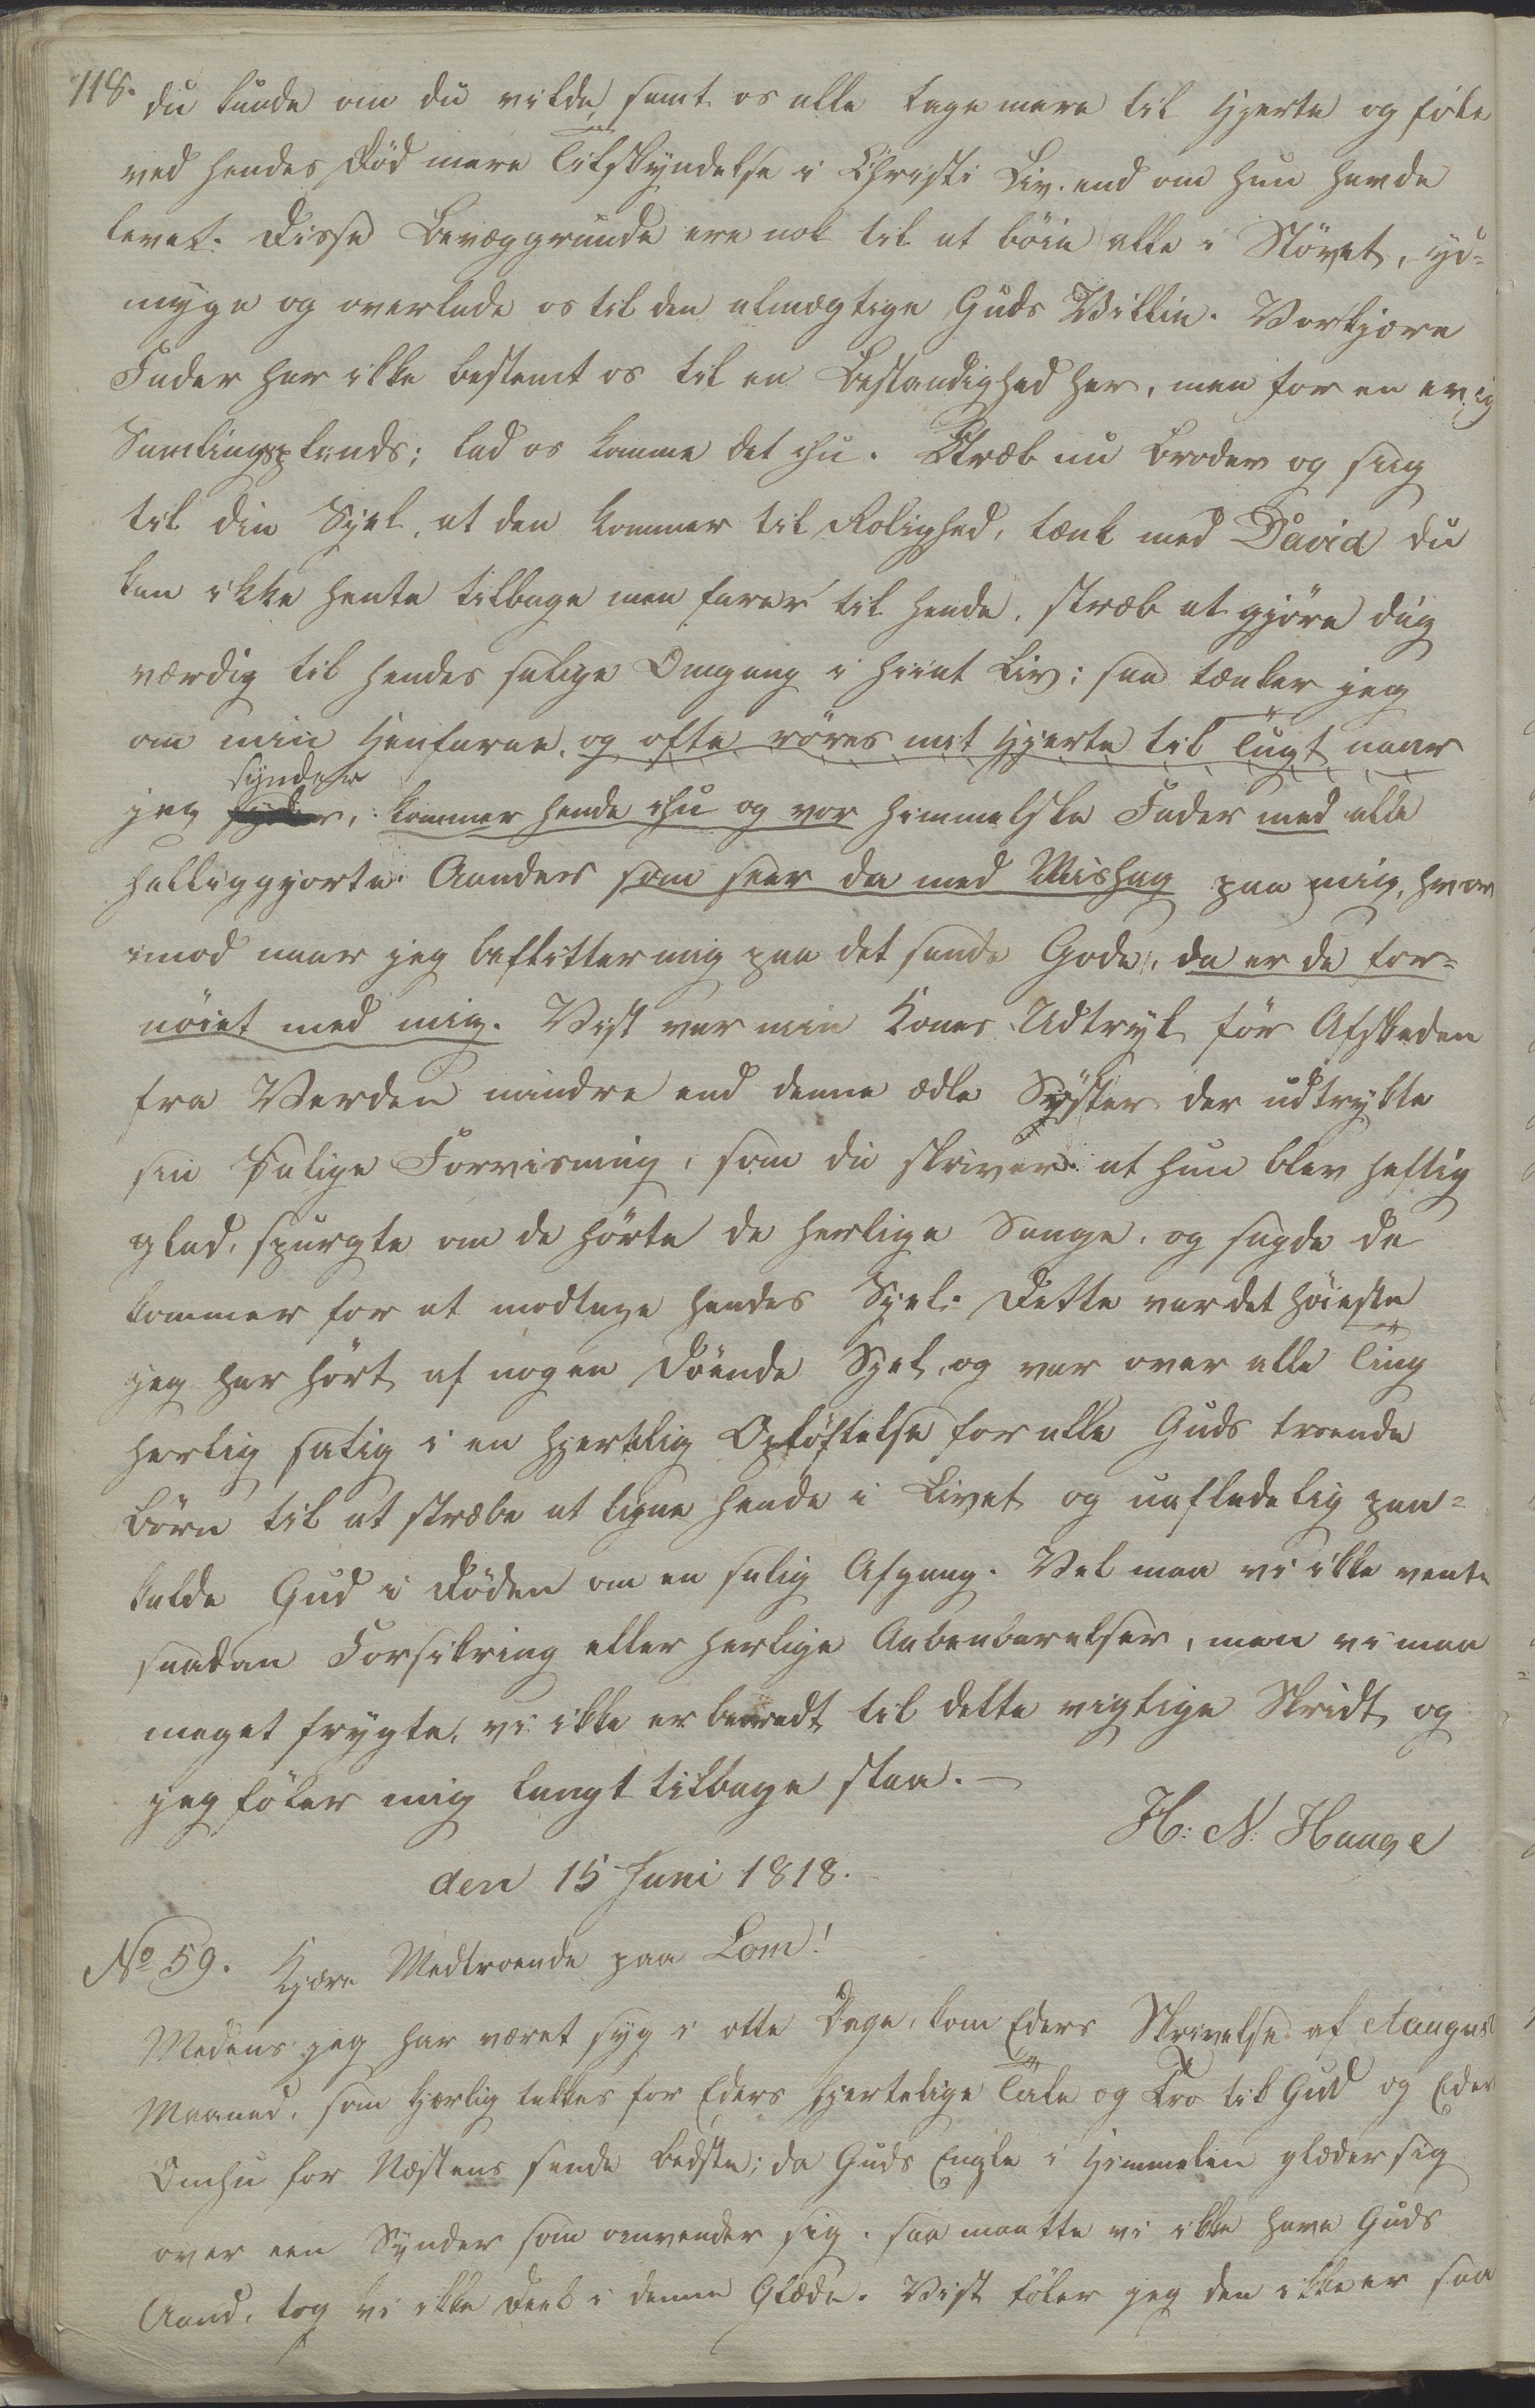 118. du kunde om du vilde, samt os alle tage mere til Hjerte og föle
ved hendes Död mere Tilskyndelse i Christi Liv. end om hun havde
levet. Disse Bevæggrunde ere nok til at böie alle i Stövet, yd-
myge og overlade os til den almægtige Guds Villie. Vor kjære
Fader har ikke bestemt os til en Bestandighed her, men for en evig
Samlingsplads; lad os komme det ihu. Stræb nu Broder og siig
til din Sjel, at den kommer til Rolighed, tænk med David du
kan ikke hente tilbage men farer til hende, stræb at gjöre dig
værdig til hendes salige Omgang i hiint Liv; saa tænker jeg
om min Henfarne, og ofte röres mit Hjerte til Tugt naar
synder
jeg, kommer hende ihu og vor himmelske Fader med alle
helliggjorte Aander som seer da med Mishag paa mig, hvor
imod naar jeg beflitter mig paa det sande Gode, da er de for-
nöiet med mig. Vist var min Kones Udtryk för Afskeden
fra Verden mindre end denne ædle Syster der udtrykte
sin salige Forvisning, som du skriver at hun blev heftig
glad, spurgte om de hörte de herlige Sange, og sagde de
kommer for at modtage hendes Sjel. Dette var det höieste
jeg har hört af nogen döende Sjel, og var over alle Ting
herlig salig i en hjertelig Oplöftelse for alle Guds troende
Börn til at stræbe at ligne hende i Livet og uafladelig paa-
kalde Gud i Döden om en salig Afgang. Vel maa vi ikke vente
saadan Forsikring eller herlige Aabenbarelser, men vi maa
meget frygte, vi ikke er beredt til dette vigtige Skridt og
jeg föler mig langt tilbage staa. —
H: N: Hauge
den 15 Juni 1818.
No 59. Kjære Medtroende paa Lom!
Medens jeg har været syg i otte Dage, kom Eders Skrivelse af August
Maaned, som kjærlig takkes for Eders hjertelige Tale og Tro til Gud og Eder
Omhu for Næstens sande Bedste; da Guds Engle i Himmelen glæder sig
over een Synder som omvender sig. saa maatte vi ikke have Guds
Aand, tog vi ikke Deel i denne Glæde. Vist föler jeg den ikke er saa